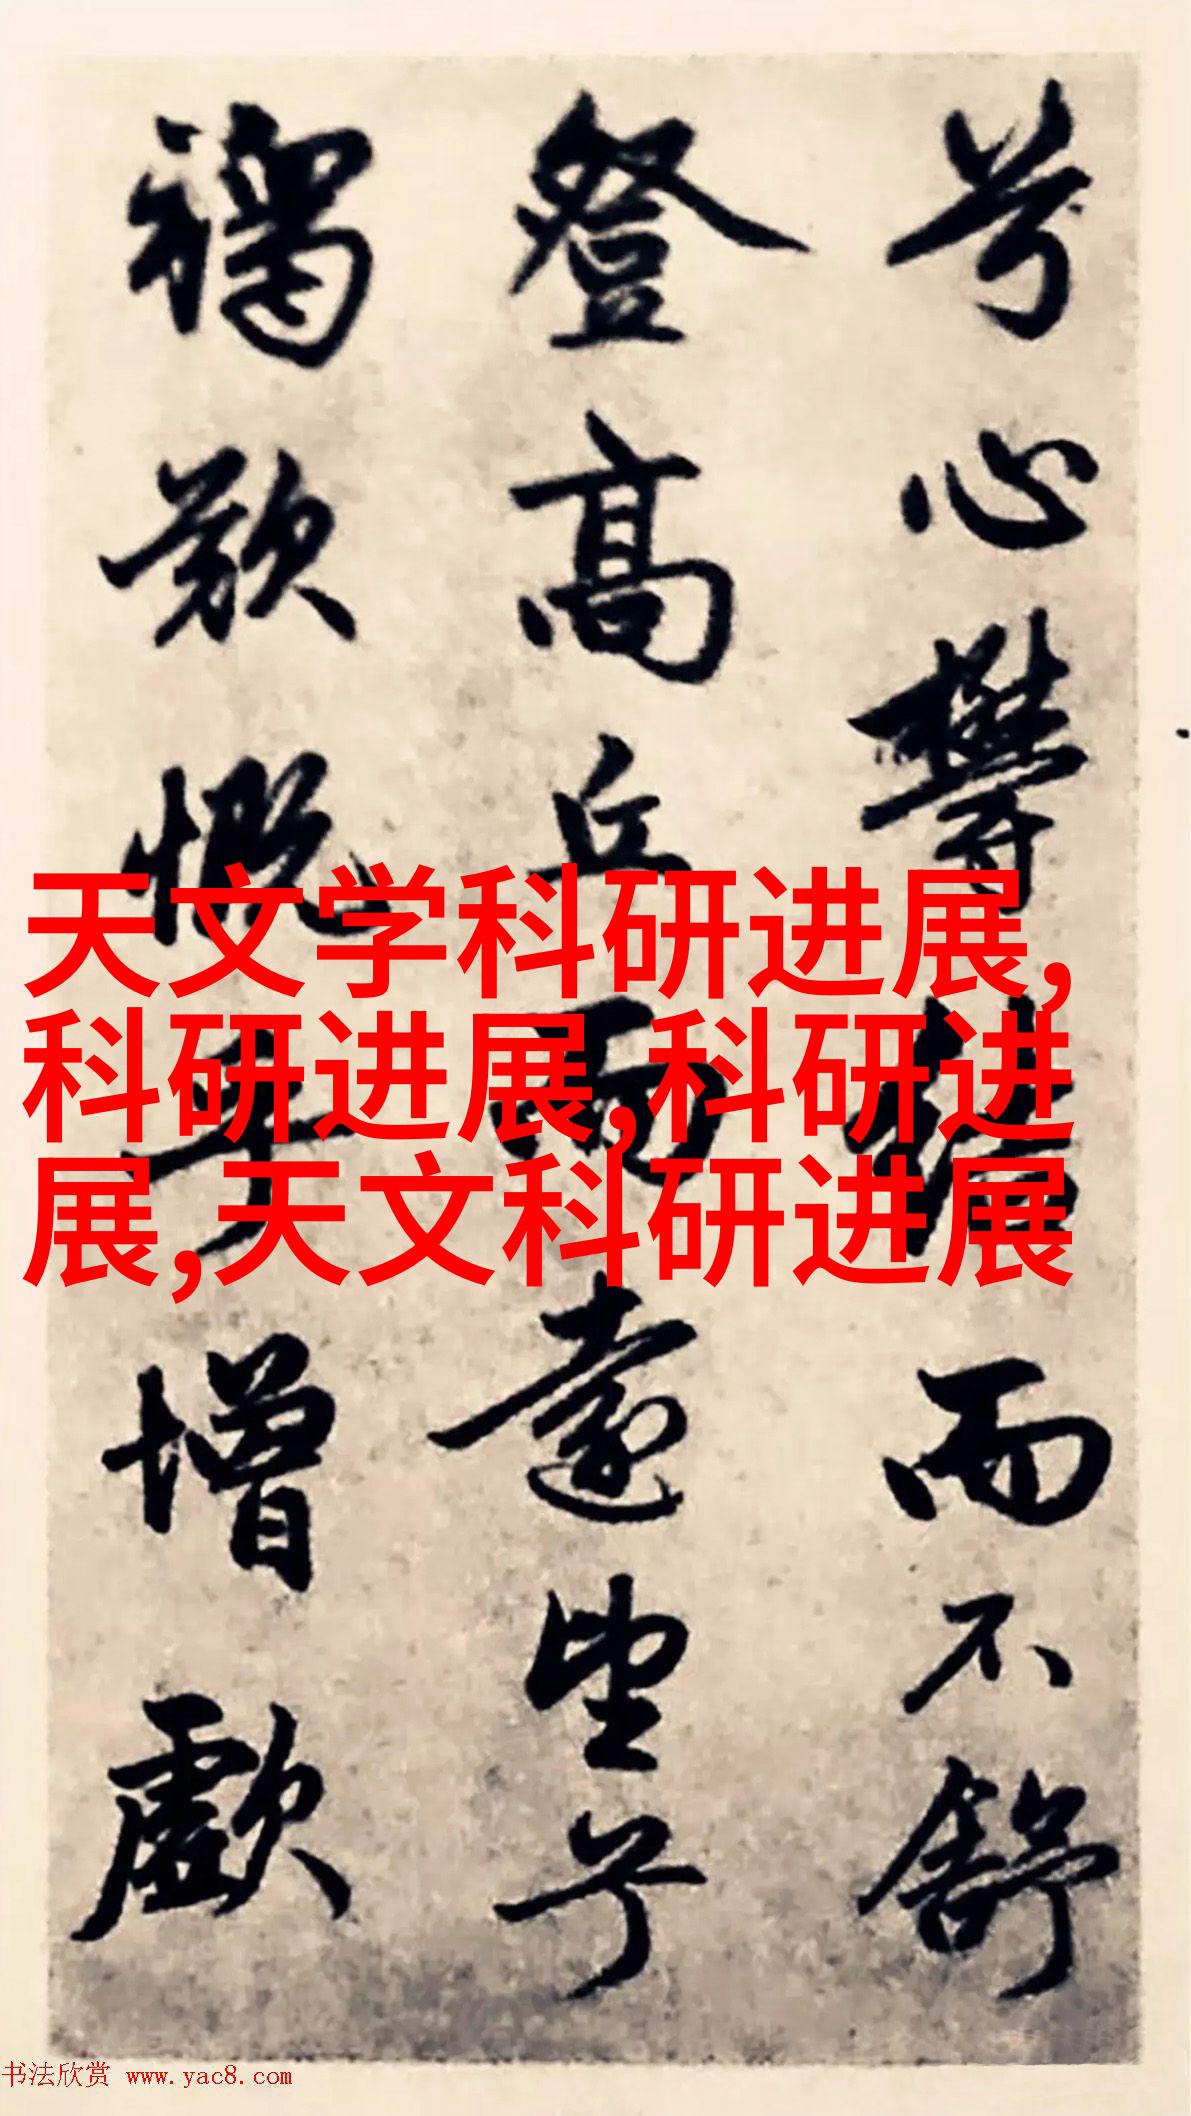 兮心欝結而不舒
登高丘而遠望兮
慨乎增歔
天文学科研进展,
科研进展,科研进
展,天文科研进展
书法欣赏 www.yac8.com